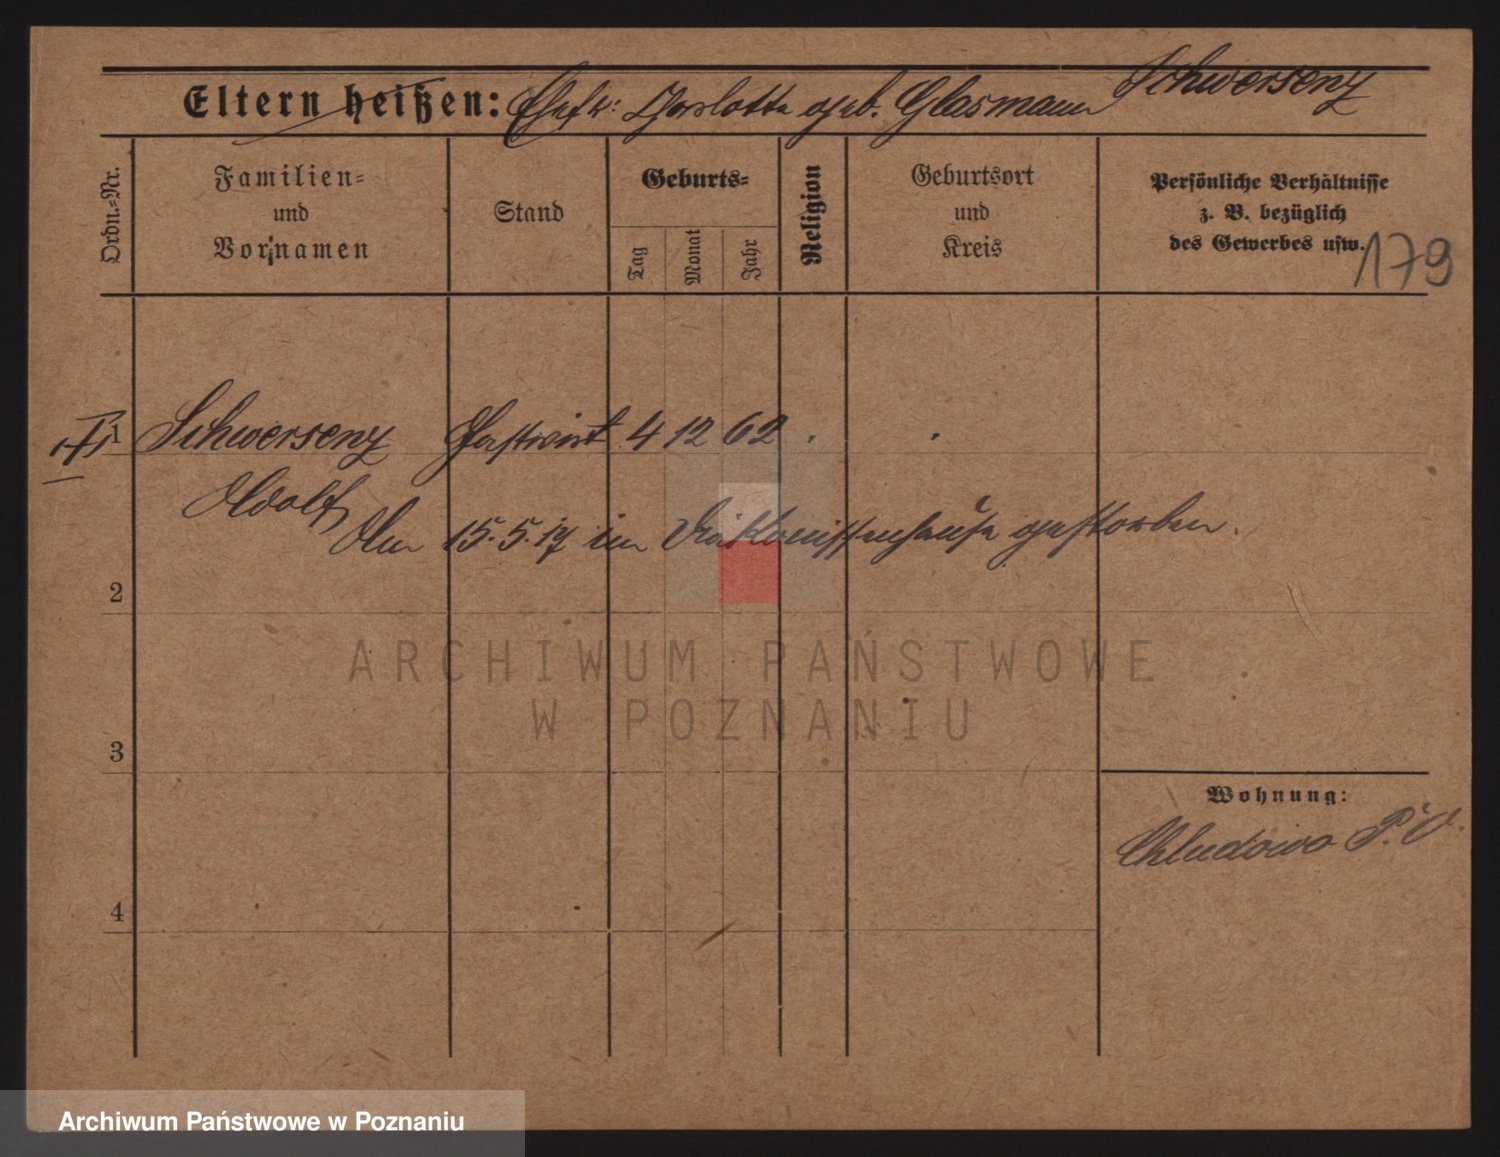 Schwersenz
Eltern heißen: Ehefr: Charlotte geb. Glasmann
Ordn.-Nr.
Familien-
und
Vornamen
Stand
Geburts-
Tag
Monat
Jahr
Religion
Geburtsort
und
Kreis
Persönliche Verhältnisse
z. B. bezüglich
des Gewerbes usw.
179
1 Schwersenz Gastwirt 4 12 62
Adolf
Am 15.5.17 im Diakonissenhause gestorben.
2
ARCHIWUM PAŃSTWOWE
W POZNANIU
3
Wohnung:
Chludowo P. O.
4
Archiwum Państwowe w Poznaniu